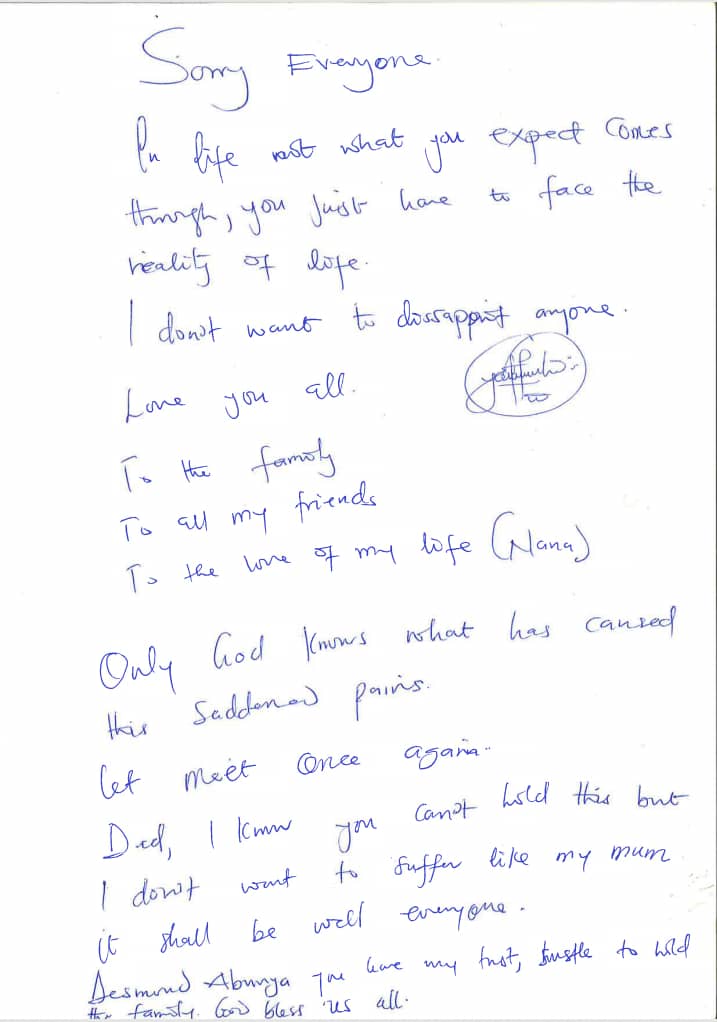 Sorry Everyone.
In life not what you expect comes
through, you just have to face the
reality of life.
I donot want to dissappoint anyone.
Love you all.
To the family
To all my friends
To the love of my life (Nana)
Only God knows what has caused
this Saddened pains.
Let meet Once again.
Dad, I know you canot hold this but
I don't want to suffer like my mum
it shall be well everyone.
Desmond Abunya you have my trust, hustle to hold
the family. God bless us all.